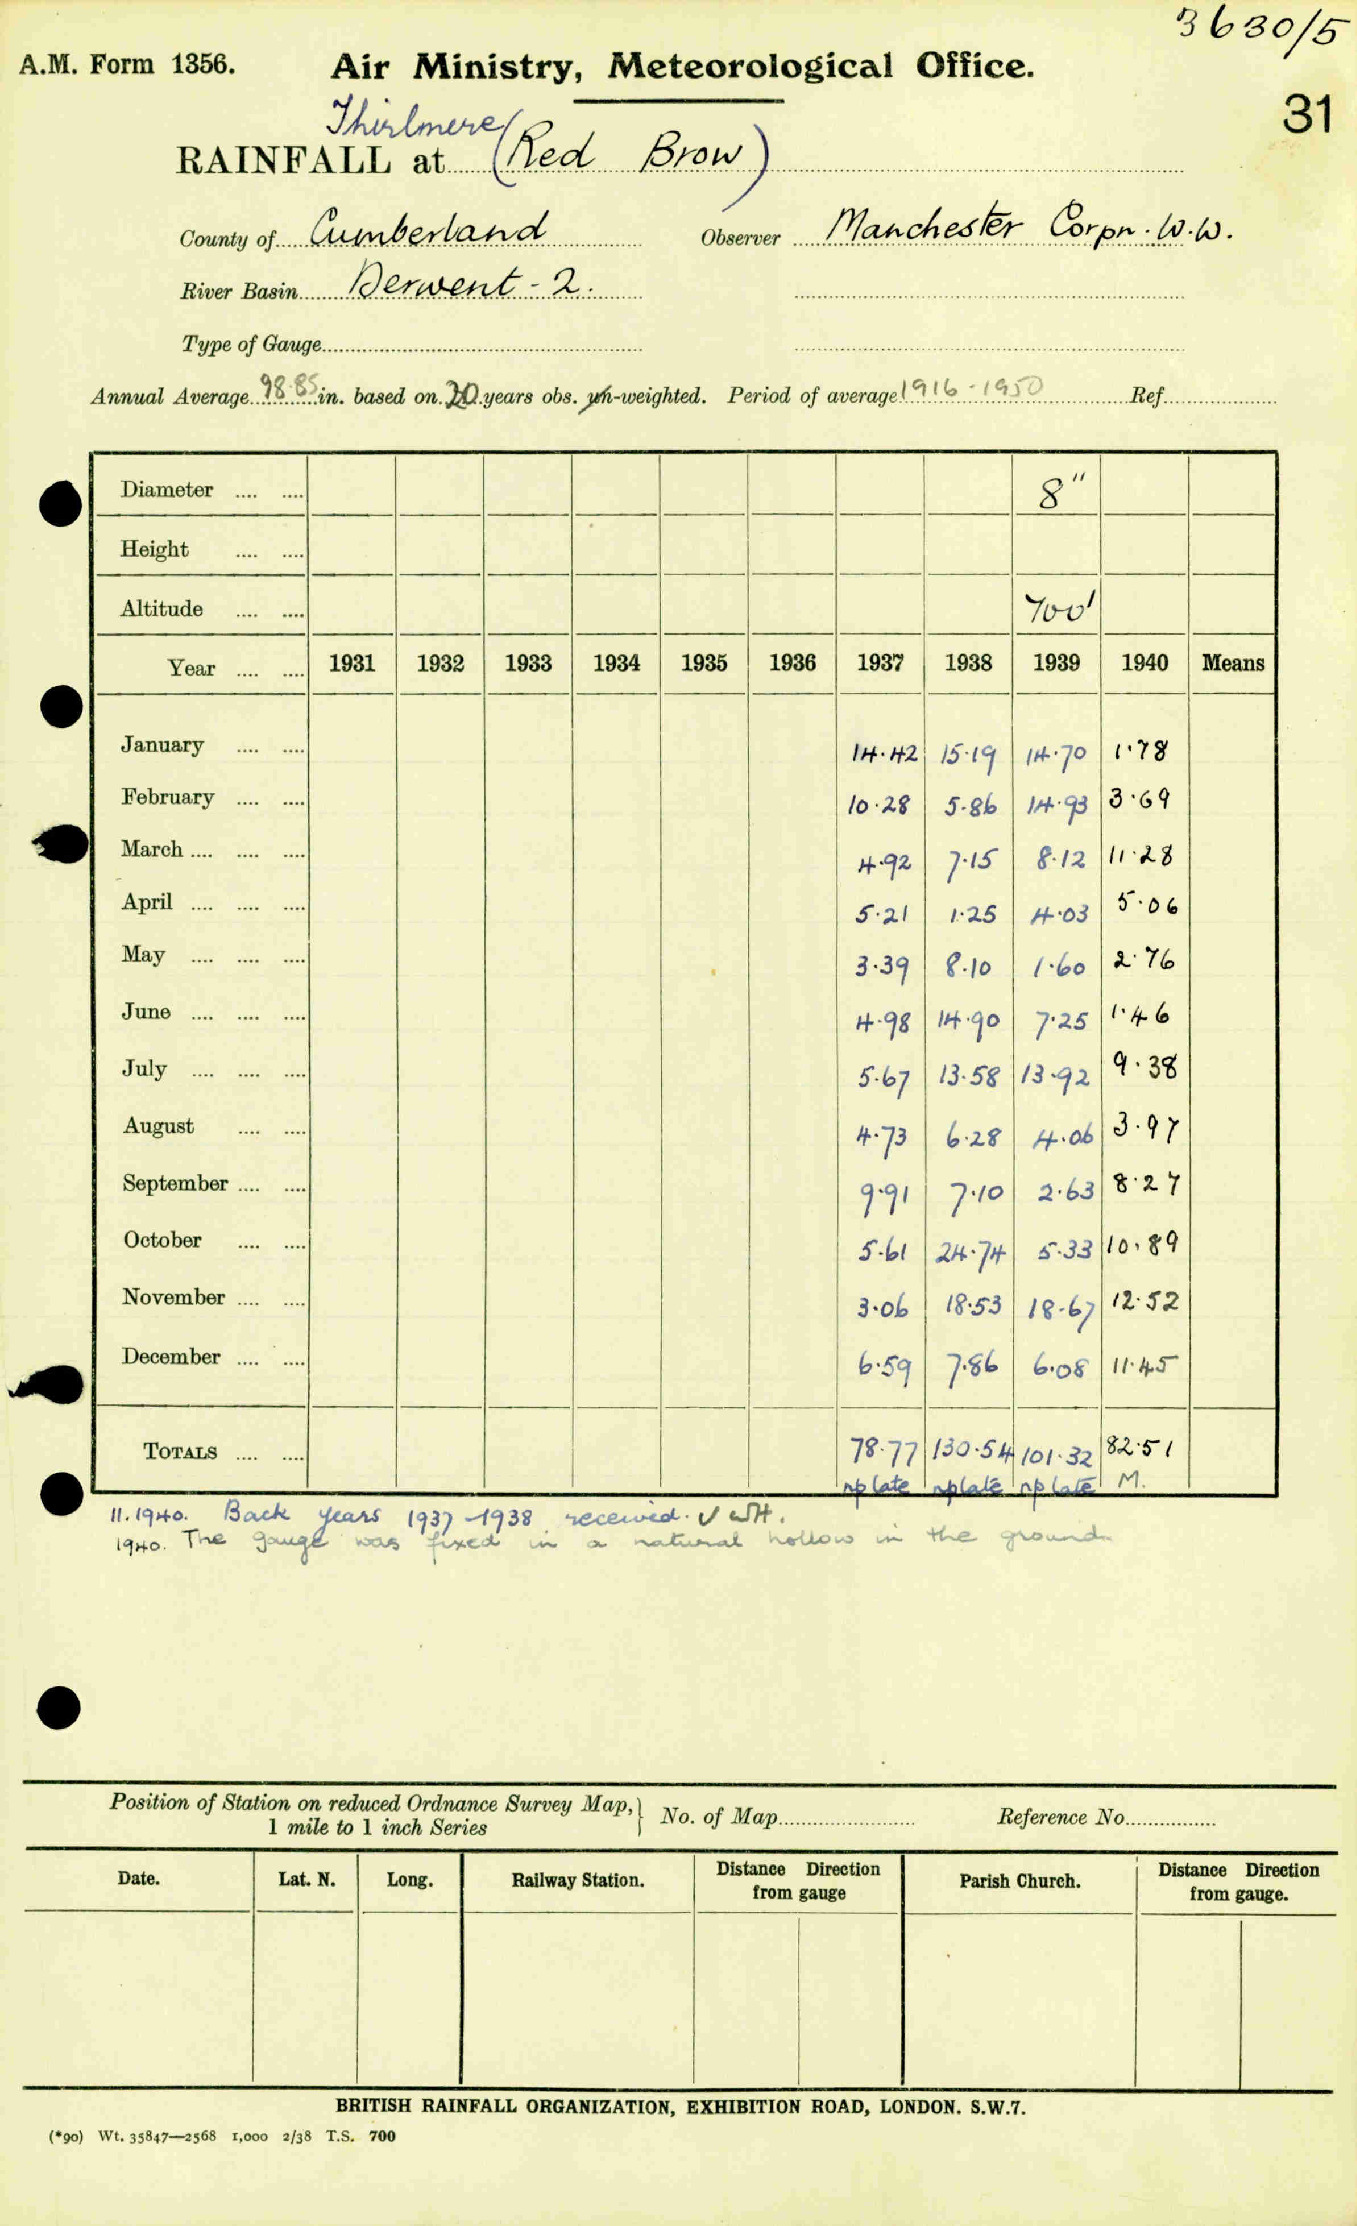 3630/5
A.M. Form 1356. Air Ministry, Meteorological Office.
31
Thirlmere
RAINFALL at (Red Brow)
County of Cumberland Observer Manchester Corpn. W.W.
River Basin Derwent - 2.
Type of Gauge
Annual Average 98.85 in. based on 20 years obs. un-weighted. Period of average 1916-1950 Ref.
Diameter .... .... 8"
Height .... ....
Altitude .... .... 700'
Year .... .... 1931 1932 1933 1934 1935 1936 1937 1938 1939 1940 Means
January .... .... 14.42 15.19 14.70 1.78
February .... .... 10.28 5.86 14.93 3.69
March .... .... .... 4.92 7.15 8.12 11.28
April .... .... .... 5.21 1.25 4.03 5.06
May .... .... .... 3.39 8.10 1.60 2.76
June .... .... .... 4.98 14.90 7.25 1.46
July .... .... .... 5.67 13.58 13.92 9.38
August .... .... 4.73 6.28 4.06 3.97
September .... .... 9.91 7.10 2.63 8.27
October .... .... 5.61 24.74 5.33 10.89
November .... .... 3.06 18.53 18.67 12.52
December .... .... 6.59 7.86 6.08 11.45
TOTALS .... .... 78.77 130.54 101.32 82.51
np late np late np late M.
11.1940. Back years 1937-1938 received. √ WH.
1940. The gauge was fixed in a natural hollow in the ground.
Position of Station on reduced Ordnance Survey Map, } No. of Map Reference No.
1 mile to 1 inch Series
Date. Lat. N. Long. Railway Station. Distance Direction from gauge Parish Church. Distance Direction from gauge.
BRITISH RAINFALL ORGANIZATION, EXHIBITION ROAD, LONDON. S.W.7.
(*90) Wt. 35847—2568 1,000 2/38 T.S. 700